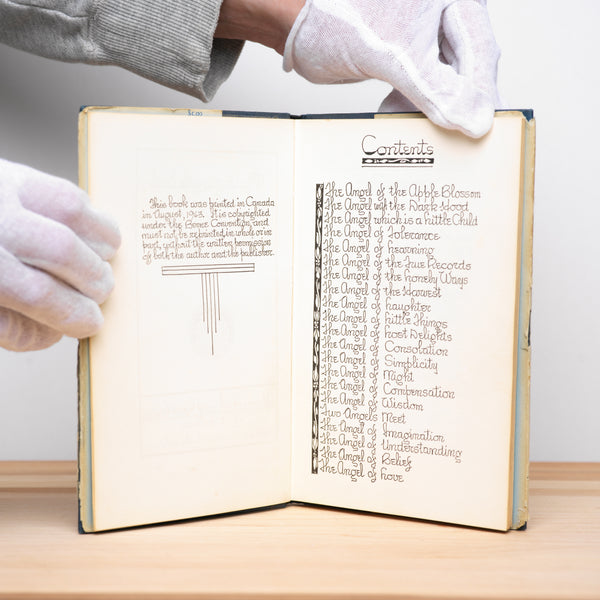 This book was printed in Canada
in August, 1963. It is copyrighted
under the Berne Convention and
must not be reprinted in whole or in
part, without the written permission
of both the author and the publisher.
Contents
The Angel of the Apple Blossom
The Angel with the Dark Hood
The Angel which is a Little Child
The Angel of Tolerance
The Angel of Learning
The Angel of the Two Records
The Angel of the Lonely Ways
The Angel of the Harvest
The Angel of Laughter
The Angel of Little Things
The Angel of Lost Delights
The Angel of Consolation
The Angel of Simplicity
The Angel of Might
The Angel of Compensation
The Angel of Wisdom
Two Angels Meet
The Angel of Imagination
The Angel of Understanding
The Angel of Belief
The Angel of Love